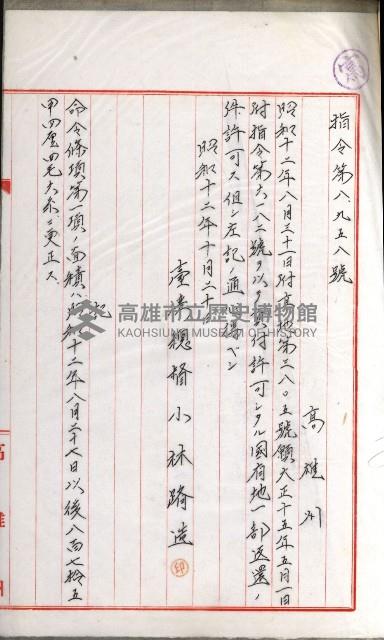 指令第八九五八號
高雄州
昭和十二年八月三十一日附高地第三八〇五號願大正十五年五月一日
附指令第六一八二號ヲ以テ貸付許可シタル國有地一部返還ノ
件許可ス但シ左記ノ通心得ベシ
昭和十二年十月二十
臺灣總督小林躋造
印
記
命令條項第一項ノ面積ハ昭和十二年八月三十七日以後八百七拾五
甲四厘四毛六糸ニ更正ス
高雄市立歷史博物館
KAOHSIUNG MUSEUM OF HISTORY
高雄州